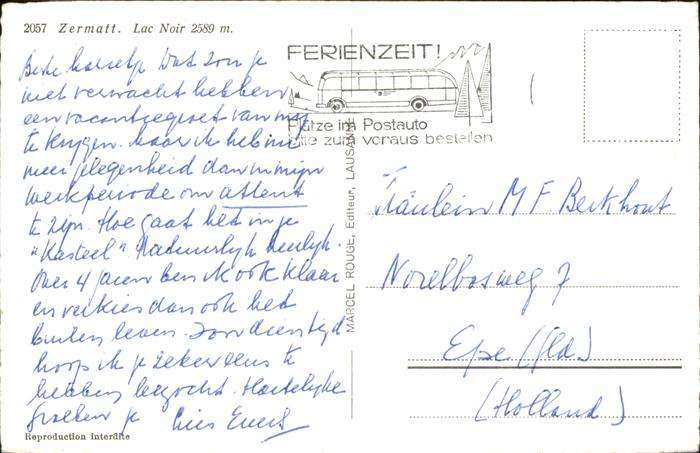 2057 Zermatt. Lac Noir 2589 m.
Beste Dat zou je
niet verwacht hebben
een vacantiegroet van mij
te krijgen. Maar ik heb nu
meer gelegenheid dan in mijn
werkperiode om attent
te zijn. Hoe gaat het in je
"Kasteel" Natuurlijk heerlijk.
Over 4 jaren ben ik ook klaar
en verkies dan ook het
buiten leven. Voor dien tijd
hoop ik je zeker eens te
hebben bezocht. Hartelijke
groeten je
Reproduction Interdite
MARCEL ROUGE, Editeur, LAUSANNE
FERIENZEIT!
Plätze im Postauto
bitte zum voraus bestellen
Fräulein M F Berkhout
7
Epe (Gld)
(Holland)